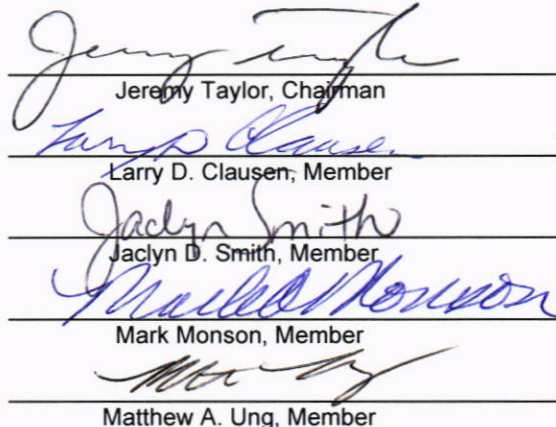 Jeremy Taylor
Jeremy Taylor, Chairman
Larry D Clausen
Larry D. Clausen, Member
Jaclyn Smith
Jaclyn D. Smith, Member
Mark Monson
Mark Monson, Member
Matthew A. Ung, Member